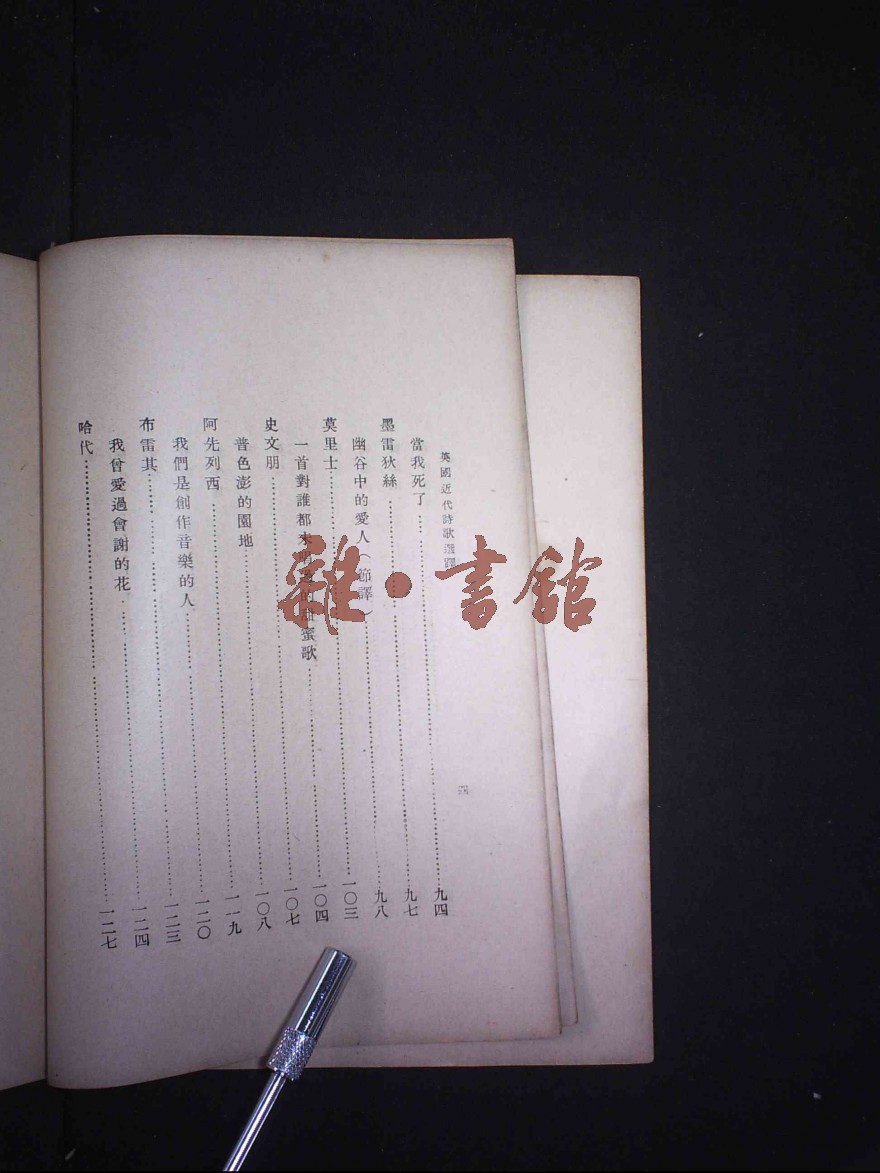 英國近代詩歌選譯
當我死了……九四
墨雷狄絲……九七
幽谷中的愛人（節譯）……九八
莫里士……一〇三
一首對誰都未的甜蜜歌……一〇四
史文朋……一〇七
普色澎的園地……一〇八
阿先列西……一一九
我們是創作音樂的人……一二〇
布雷其……一二三
我曾愛過會謝的花……一二四
哈代……一二七
雜·書館